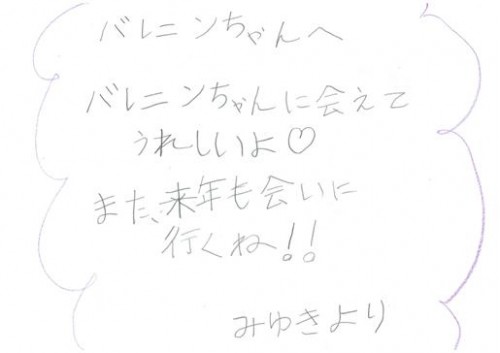 バレニンちゃんへ
バレニンちゃんに会えて
うれしいよ♡
また、来年も会いに
行くね!!
みゆきより